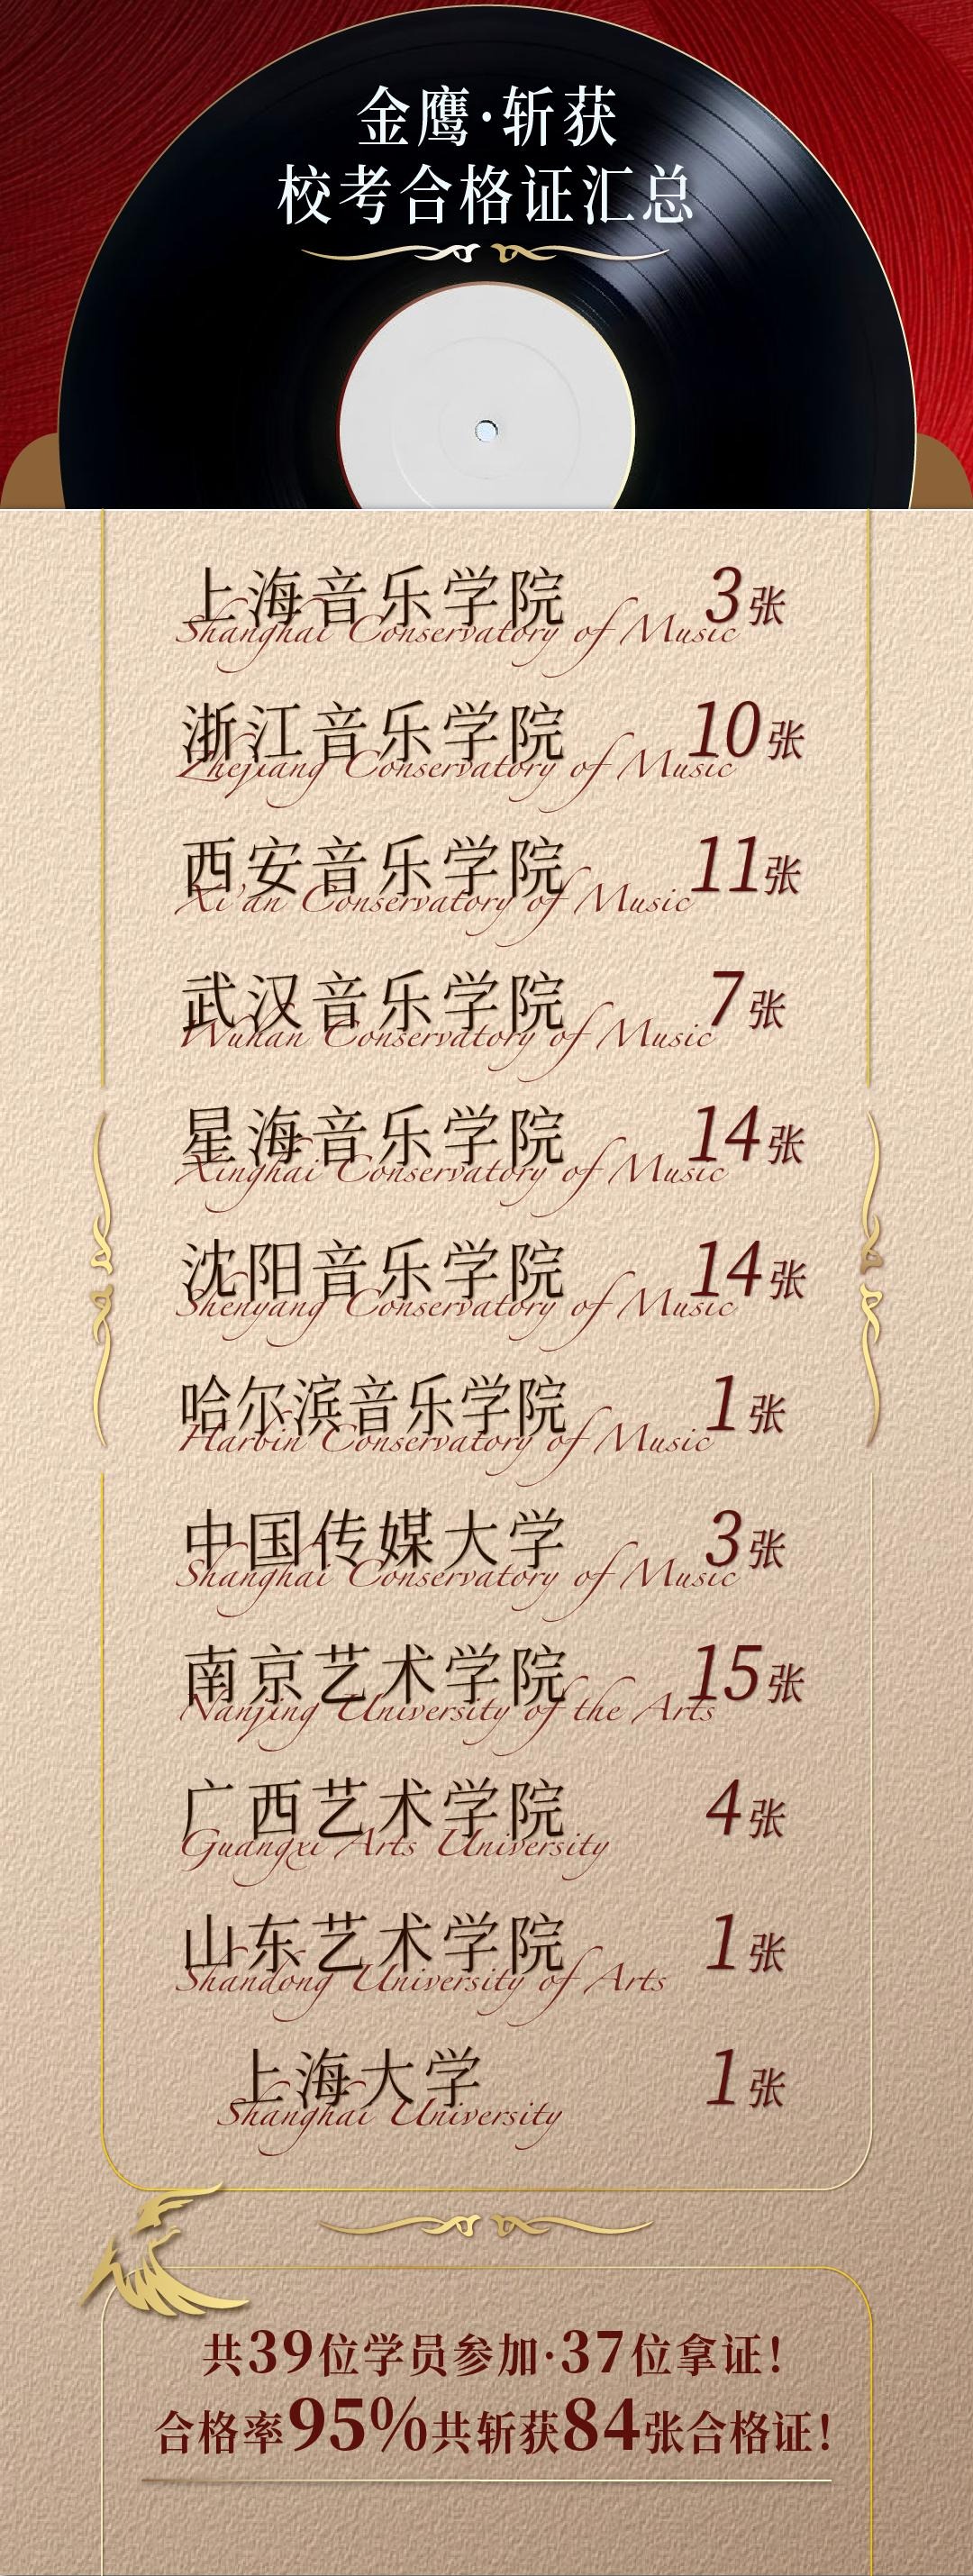 金鹰·斩获
校考合格证汇总
上海音乐学院 3张
Shanghai Conservatory of Music
浙江音乐学院 10张
Zhejiang Conservatory of Music
西安音乐学院 11张
Xi'an Conservatory of Music
武汉音乐学院 7张
Wuhan Conservatory of Music
星海音乐学院 14张
Xinghai Conservatory of Music
沈阳音乐学院 14张
Shenyang Conservatory of Music
哈尔滨音乐学院 1张
Harbin Conservatory of Music
中国传媒大学 3张
Shanghai Conservatory of Music
南京艺术学院 15张
Nanjing University of the Arts
广西艺术学院 4张
Guangxi Arts University
山东艺术学院 1张
Shandong University of Arts
上海大学 1张
Shanghai University
共39位学员参加·37位拿证！
合格率95%共斩获84张合格证！